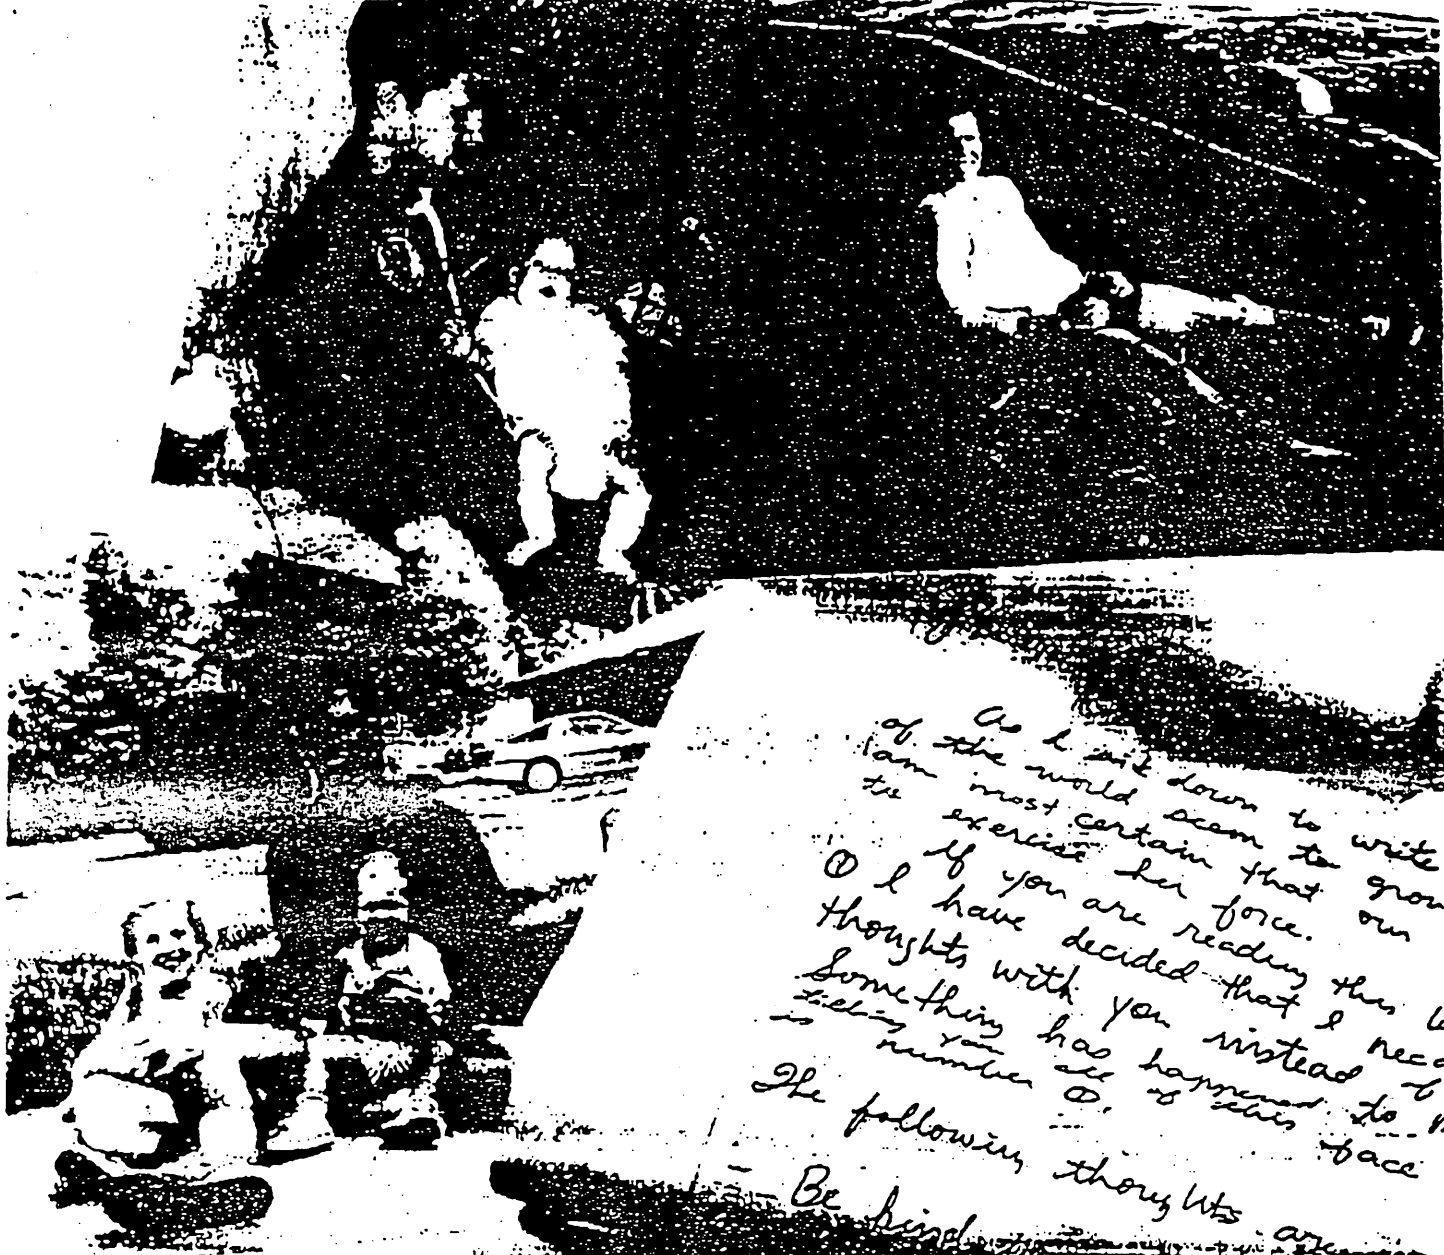 As I sit down to write
of the world seem to grow
I am most certain that our
to exercise her force.
If you are reading this
① I have decided that I need
thoughts with you instead of
Something has happened to
telling you all of this face
is number ①.
The following thoughts are
Be kind